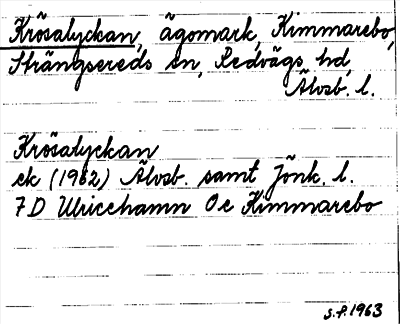 Krösalyckan, ägomark, Kimmarebo,
Strängsereds sn, Redvägs hd,
Älvsb. l.
Krösalyckan
ek (1962) Älvsb. samt Jönk. l.
7D Ulricehamn 0c Kimmarebo
S.P. 1963